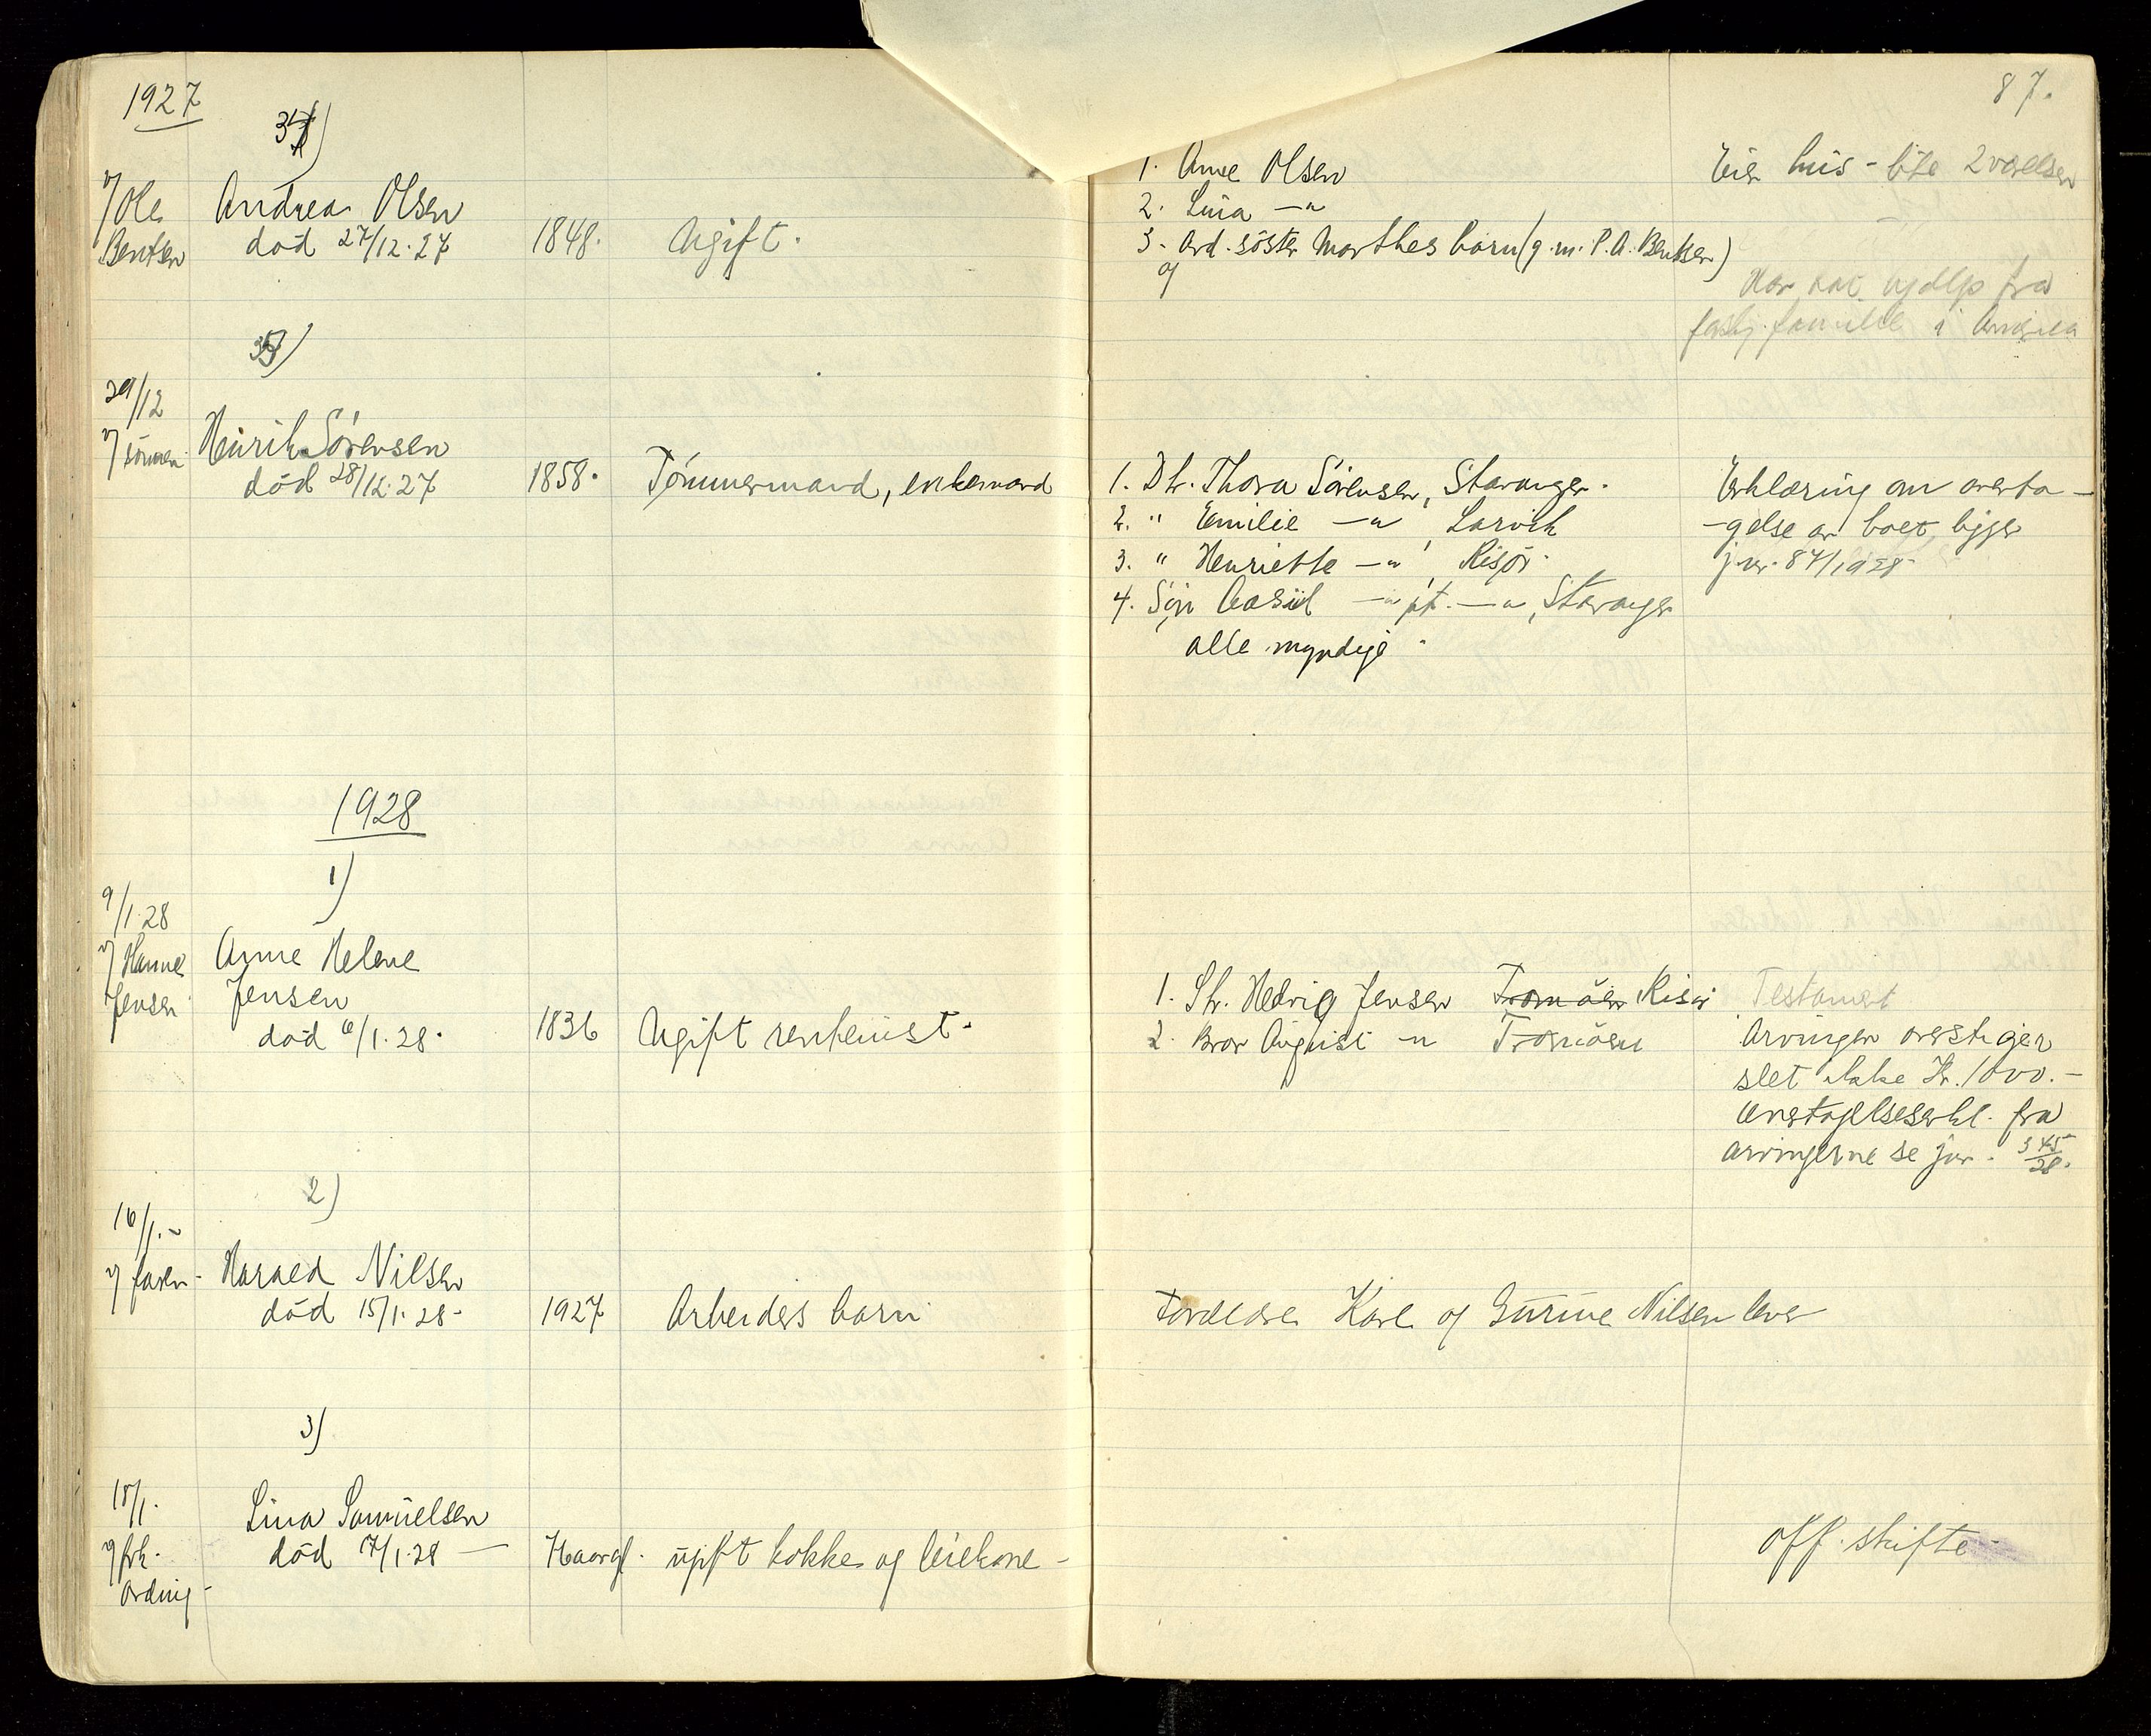 1927
87.
34)
v/ Ole Bentsen
Andrea Olsen
död 27/12.27
1848.
Ugift.
1. Anne Olsen
2. Lina —"—
3. Avd. söster Marthes barn (g.m. P.A. Bentsen)
og
Eier hus - lite 2 værelser
Har hat hjælp fra
familie i Amerika
35)
29/12
v/ sönnen
Henrik Sörensen
död 28/12.27
1858.
Tömmermand, enkemand
1. Dtr. Thora Sörensen, Stavanger.
2. " Emilie —"— Larvik
3. " Henriette —"—, Risör.
4. Sön Aasul —"— pt. —"—, Stavanger
alle myndige.
Erklæring om overta-
-gelse av boet ligger
j.nr. 87/1928.
1928
1)
9/1.28
v/ Hanne
Jensen
Anne Helene
Jensen
död 6/1.28.
1836
Ugift rentenist.
1. Str. Hedvig Jensen Tromöen Risör
2. Bror August —"— Tromöen
Testament
Arvingen overstiger
slet ikke Kr. 1000.-
Overtagelseserkl. fra
arvingerne se jnr. 345/28.
2)
16/1.-
v/ faren-
Harald Nilsen
död 15/1.28-
1927
Arbeiders barn
Forældre Karl og Gurine Nilsen lever
3)
18/1.
v/ frk.
Ording-
Lina Samuelsen
död 17/1.28 —
ugift kokke og leiekone-
Off. skifte